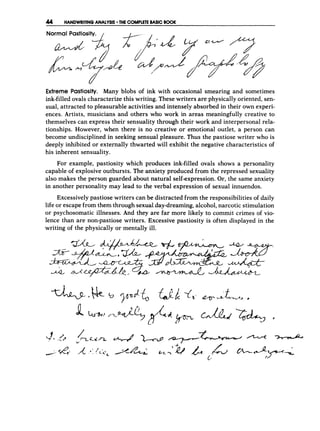 44 HANDWRITING ANALYSIS - THE COMPLETE BASIC BOOK
Normal Pastiosity.
and try to pick up our
Extreme Pastiosity. Many blobs of ink with occasional smearing and sometimes
ink-filled ovals characterize this writing. These writers are physically oriented, sen-
sual, attracted to pleasurable activities and intensely absorbed in their own experi-
ences. Artists, musicians and others who work in areas meaningfully creative to
themselves can express their sensuality through their work and interpersonal rela-
tionships. However, when there is no creative or emotional outlet, a person can
become undisciplined in seeking sensual pleasure. Thus the pastiose writer who is
deeply inhibited or externally thwarted will exhibit the negative characteristics of
his inherent sensuality.
For example, pastiosity which produces ink-filled ovals shows a personality
capable of explosive outbursts. The anxiety produced from the repressed sexuality
also makes the person guarded about natural self-expression. Or, the same anxiety
in another personality may lead to the verbal expression of sexual innuendos.
Excessively pastiose writers can be distracted from the responsibilities of daily
life or escape from them through sexual day-dreaming, alcohol, narcotic stimulation
or psychosomatic illnesses. And they are far more likely to commit crimes of vio-
lence than are non-pastiose writers. Excessive pastiosity is often displayed in the
writing of the physically or mentally ill.
The difference of opinion is easy
to explain. The psychoanalyst looks
toward society to determine what
is acceptable as normal behavior
there. He is good to talk to
I was really glad you called today.
will be for analysis